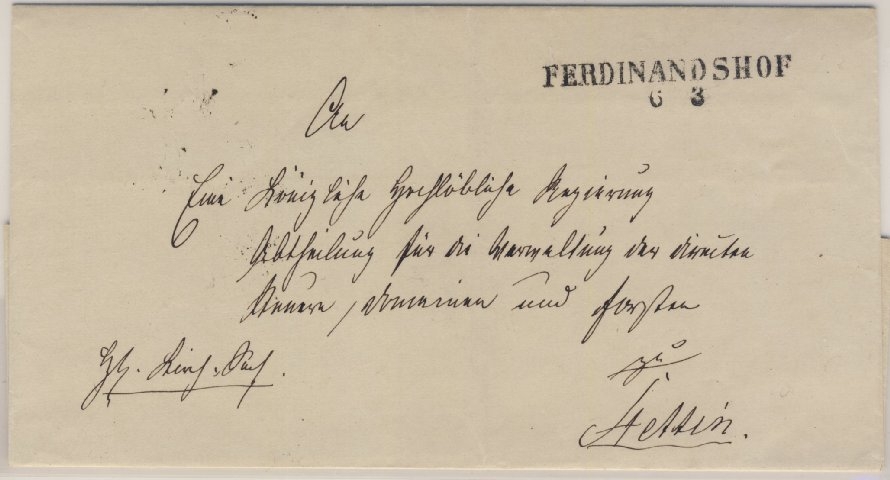 FERDINANDSHOF
6 3
An
Eine Königliche Hochlöbliche Regierung
Abtheilung für die Verwaltung der directen
Steuern, Domainen und Forsten
zu
Stettin.